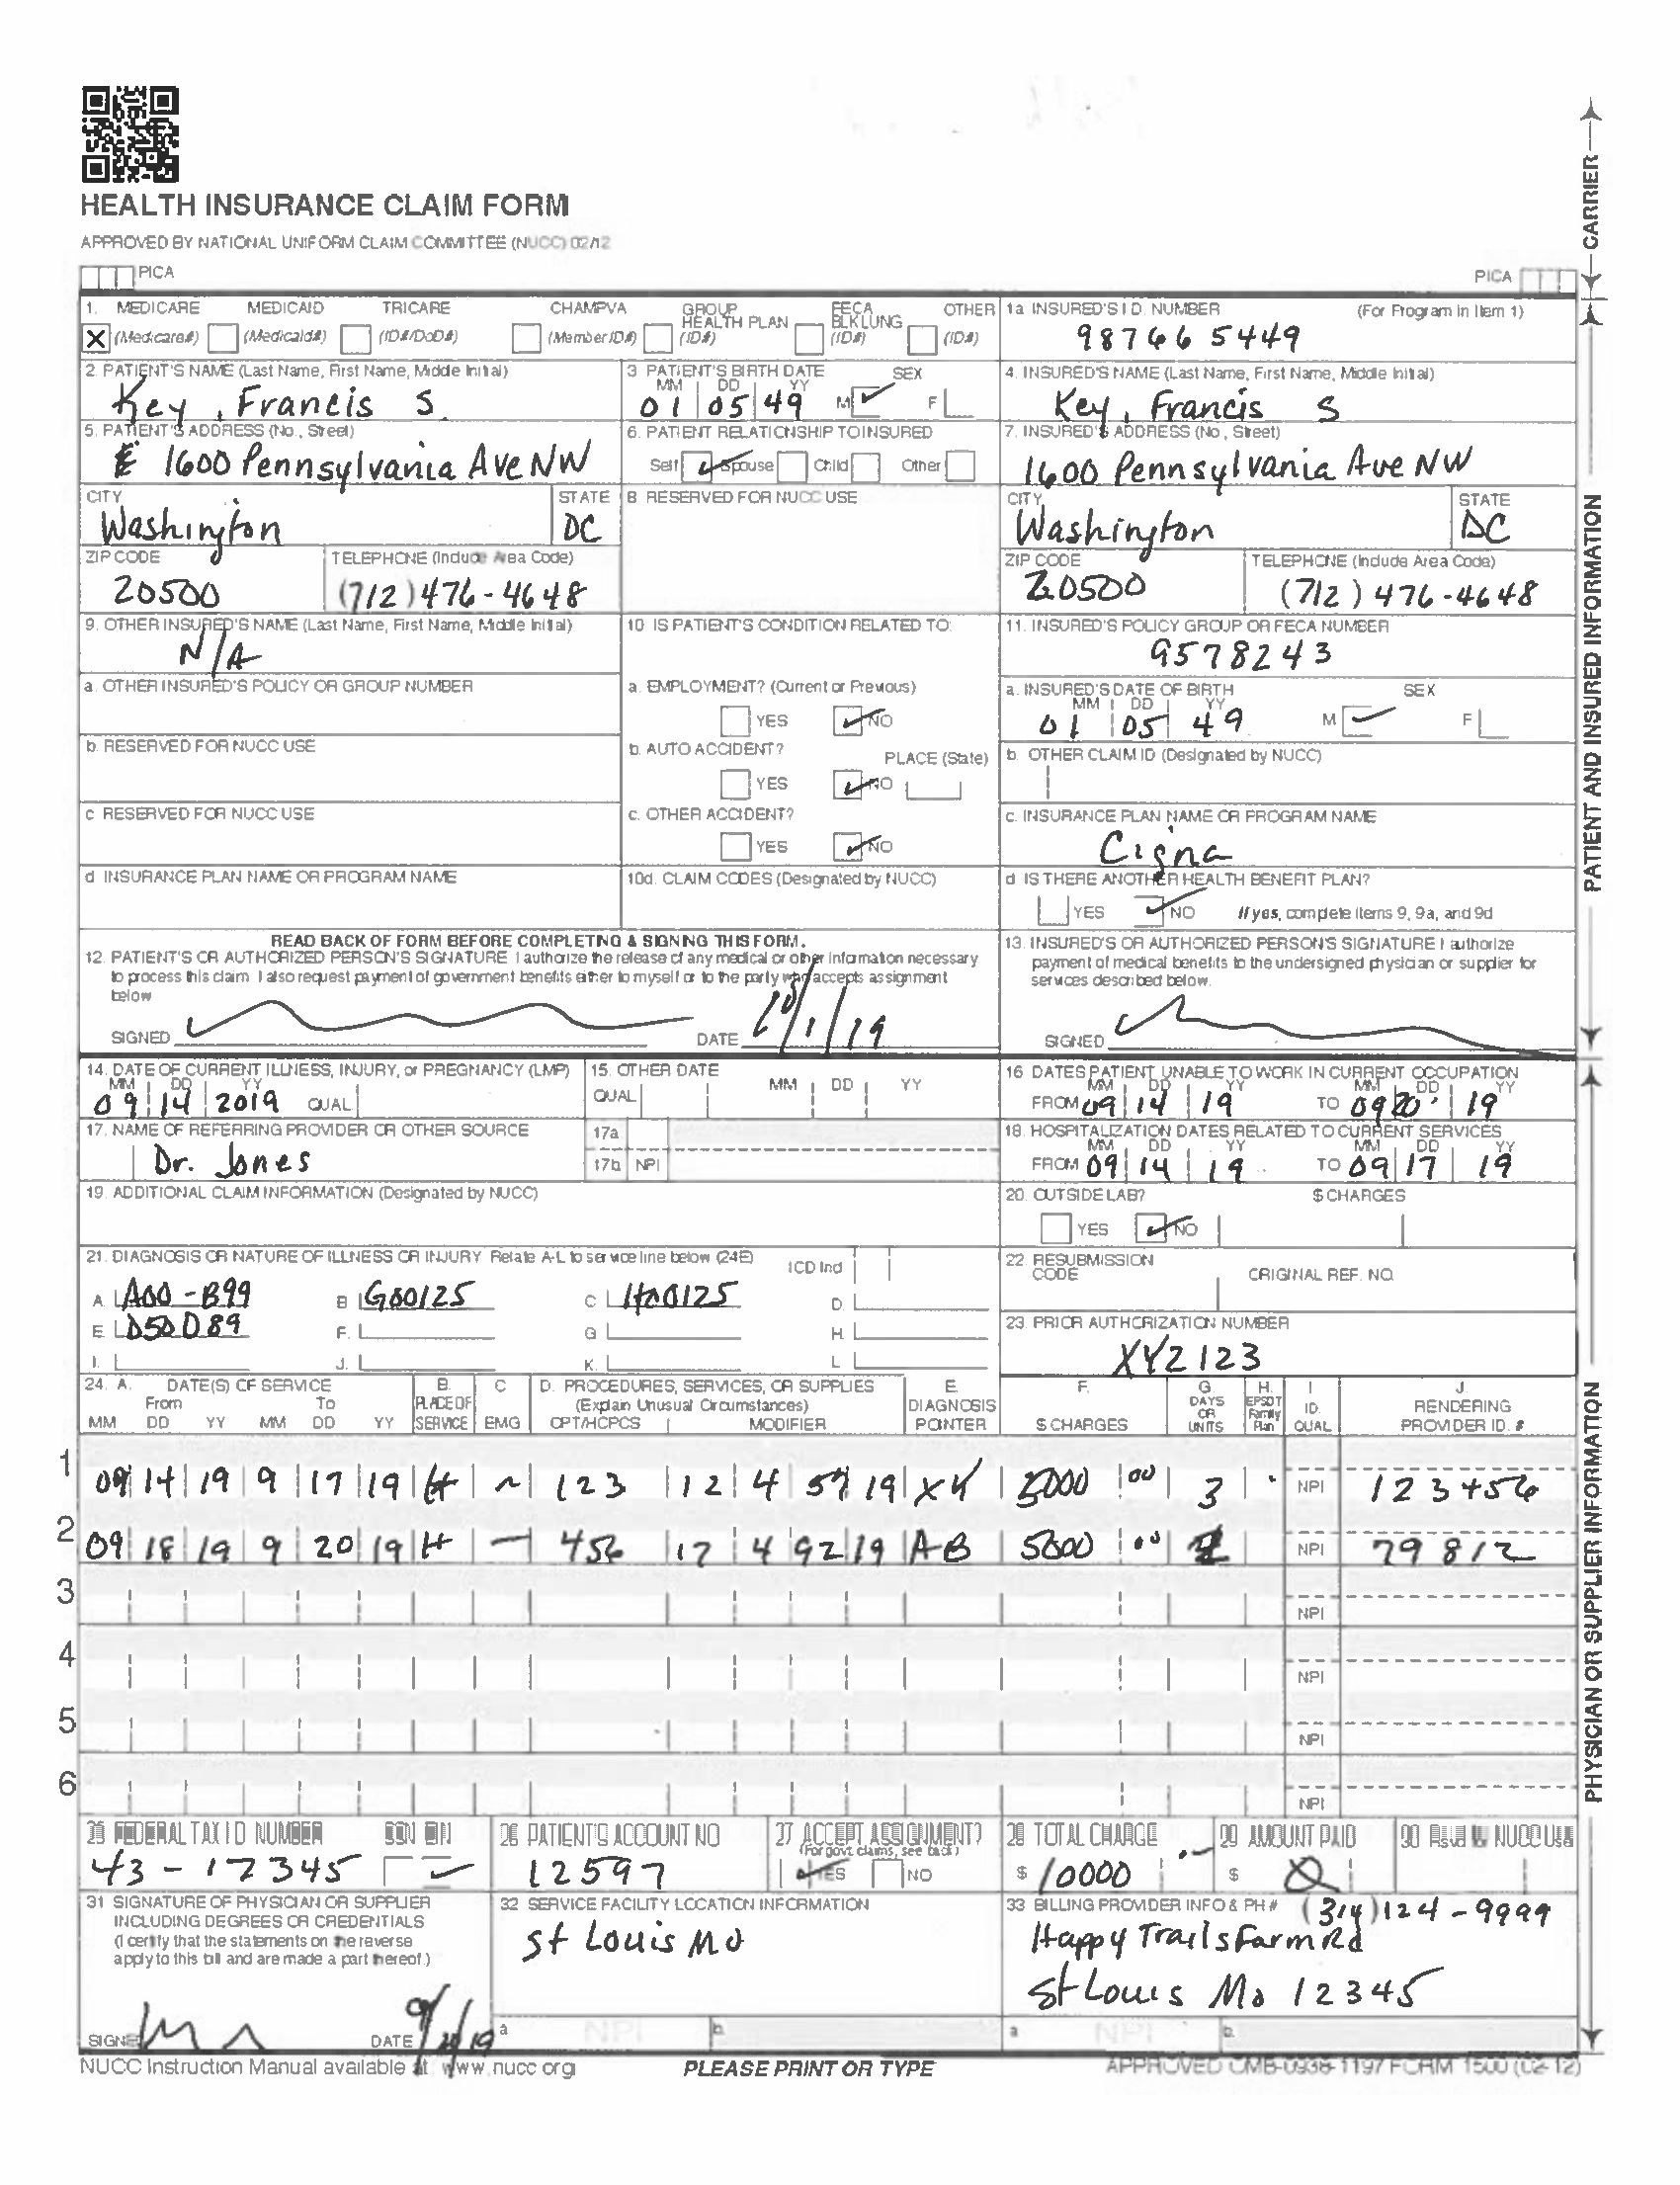 HEALTH INSURANCE CLAIM FORM
APPROVED BY NATIONAL UNIFORM CLAIM COMMITTEE (NUCC) 02/12
PICA
PICA
CARRIER
1. MEDICARE MEDICAID TRICARE CHAMPVA GROUP HEALTH PLAN FECA BLK LUNG OTHER
X (Medicare#) (Medicaid#) (ID#/DoD#) (Member ID#) (ID#) (ID#) (ID#)
1a INSURED'S I D. NUMBER (For Program in Item 1)
98766 5449
2. PATIENT'S NAME (Last Name, First Name, Middle Initial)
Key, Francis S.
3 PATIENT'S BIRTH DATE SEX
MM DD YY
01 05 49 M F
4. INSURED'S NAME (Last Name, First Name, Middle Initial)
Key, Francis S
5. PATIENT'S ADDRESS (No., Street)
1600 Pennsylvania Ave NW
6. PATIENT RELATIONSHIP TO INSURED
Self Spouse Child Other
7. INSURED'S ADDRESS (No, Street)
1600 Pennsylvania Ave NW
CITY STATE
Washington DC
8 RESERVED FOR NUCC USE
CITY STATE
Washington DC
ZIP CODE TELEPHONE (Include Area Code)
20500 (712) 476-4648
ZIP CODE TELEPHONE (Include Area Code)
20500 (712) 476-4648
9. OTHER INSURED'S NAME (Last Name, First Name, Middle Initial)
N/A
10 IS PATIENT'S CONDITION RELATED TO:
11. INSURED'S POLICY GROUP OR FECA NUMBER
9578243
a. OTHER INSURED'S POLICY OR GROUP NUMBER
a. EMPLOYMENT? (Current or Previous)
YES NO
a. INSURED'S DATE OF BIRTH SEX
MM DD YY
01 05 49 M F
b. RESERVED FOR NUCC USE
b. AUTO ACCIDENT? PLACE (State)
YES NO
b. OTHER CLAIM ID (Designated by NUCC)
c RESERVED FOR NUCC USE
c. OTHER ACCIDENT?
YES NO
c. INSURANCE PLAN NAME OR PROGRAM NAME
Cigna
d INSURANCE PLAN NAME OR PROGRAM NAME
10d. CLAIM CODES (Designated by NUCC)
d IS THERE ANOTHER HEALTH BENEFIT PLAN?
YES NO If yes, complete items 9, 9a, and 9d
PATIENT AND INSURED INFORMATION
READ BACK OF FORM BEFORE COMPLETNG & SIGNING THIS FORM.
12. PATIENT'S OR AUTHORIZED PERSON'S SIGNATURE I authorize the release of any medical or other information necessary
to process this claim I also request payment of government benefits either to myself or to the party who accepts assignment
below
SIGNED DATE 10/1/19
13. INSURED'S OR AUTHORIZED PERSON'S SIGNATURE I authorize
payment of medical benefits to the undersigned physician or supplier for
services described below.
SIGNED
14. DATE OF CURRENT ILLNESS, INJURY, or PREGNANCY (LMP)
MM DD YY
09 14 2019 QUAL
15. OTHER DATE
QUAL MM DD YY
16 DATES PATIENT UNABLE TO WORK IN CURRENT OCCUPATION
MM DD YY MM DD YY
FROM 09 14 19 TO 09 20 19
17. NAME OF REFERRING PROVIDER OR OTHER SOURCE
Dr. Jones
17a
17b NPI
18. HOSPITALIZATION DATES RELATED TO CURRENT SERVICES
MM DD YY MM DD YY
FROM 09 14 19 TO 09 17 19
19. ADDITIONAL CLAIM INFORMATION (Designated by NUCC)
20. OUTSIDE LAB? $ CHARGES
YES NO
21. DIAGNOSIS OR NATURE OF ILLNESS OR INJURY Relate A-L to service line below (24E) ICD Ind
A. A00-B99 B G00125 C H00125 D.
E D50D89 F. G H.
I. J. K. L
22. RESUBMISSION CODE ORIGINAL REF. NO.
23. PRIOR AUTHORIZATION NUMBER
XYZ123
24. A. DATE(S) OF SERVICE B. C D. PROCEDURES, SERVICES, OR SUPPLIES E. F. G. H. I J.
From To PLACE OF (Explain Unusual Circumstances) DIAGNOSIS DAYS OR UNITS EPSDT Family Plan ID. RENDERING
MM DD YY MM DD YY SERVICE EMG CPT/HCPCS MODIFIER POINTER $ CHARGES QUAL PROVIDER ID. #
1 09 14 19 9 17 19 H ~ 123 12 4 57 19 5000 00 3 NPI 123456
2 09 18 19 9 20 19 H — 456 17 4 92 19 AB 5000 00 NPI 79812
3 NPI
4 NPI
5 NPI
6 NPI
25 FEDERAL TAX I D NUMBER SSN EIN
43-12345
26 PATIENT'S ACCOUNT NO
12597
27 ACCEPT ASSIGNMENT?
(For govt. claims, see back)
YES NO
28 TOTAL CHARGE
$ 10000
29 AMOUNT PAID
$ 0
30 Rsvd for NUCC Use
31 SIGNATURE OF PHYSICIAN OR SUPPLIER
INCLUDING DEGREES OR CREDENTIALS
(I certify that the statements on the reverse
apply to this bill and are made a part thereof.)
SIGNED DATE
32 SERVICE FACILITY LOCATION INFORMATION
St Louis Mo
a NPI b.
33 BILLING PROVIDER INFO & PH # (314)124-9999
Happy Trails Farm Rd
St Louis Mo 12345
a NPI b.
PHYSICIAN OR SUPPLIER INFORMATION
NUCC Instruction Manual available at www.nucc.org
PLEASE PRINT OR TYPE
APPROVED OMB-0938-1197 FORM 1500 (02-12)